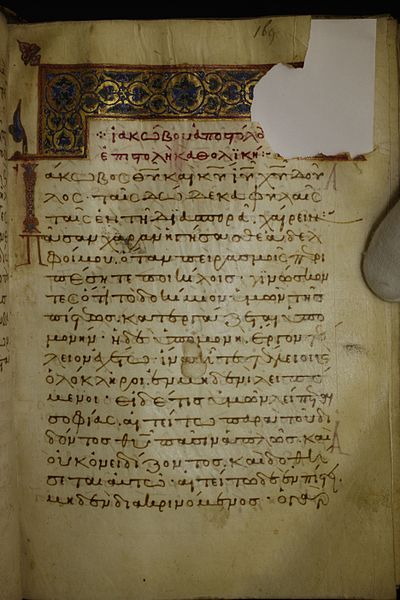 169
ἰακώβου ἀποστόλο
ἐπιστολὴ καθολική
Ιάκωβος θυ καὶ κυ ιυ χυ δοῦ
λος· ταῖς δώδεκα φυλαῖς
ταῖς ἐν τῆ διασπορᾶ. χαίρειν
Πᾶσαν χαρὰν ἡγήσασθε ἀδελ
φοί μου, ὅταν πειρασμοῖς περι
πέσητε ποικίλοις· γινώσκον
τες ὅτι τὸ δοκίμιον ὑμῶν τῆς
πίστεως. κατεργάζεται ὑπο
μονήν· ἡ δὲ ὑπομονὴ. ἔργον τέ
λειον ἐχέτω· ἵνα ἦτε τέλειοι καὶ
ὁλόκληροι. ἐν μηδενὶ λειπό
μενοι· εἰ δέ τις ὑμῶν λείπεται
σοφίας. αἰτείτω παρὰ τοῦ δι
δόντος θυ πᾶσιν ἁπλῶς. καὶ
οὐκ ὀνειδίζοντος. καὶ δοθή
σεται αὐτῶ· αἰτείτω δὲ ἐν πίστει.
μηδὲν διακρινόμενος· ὁ γὰρ